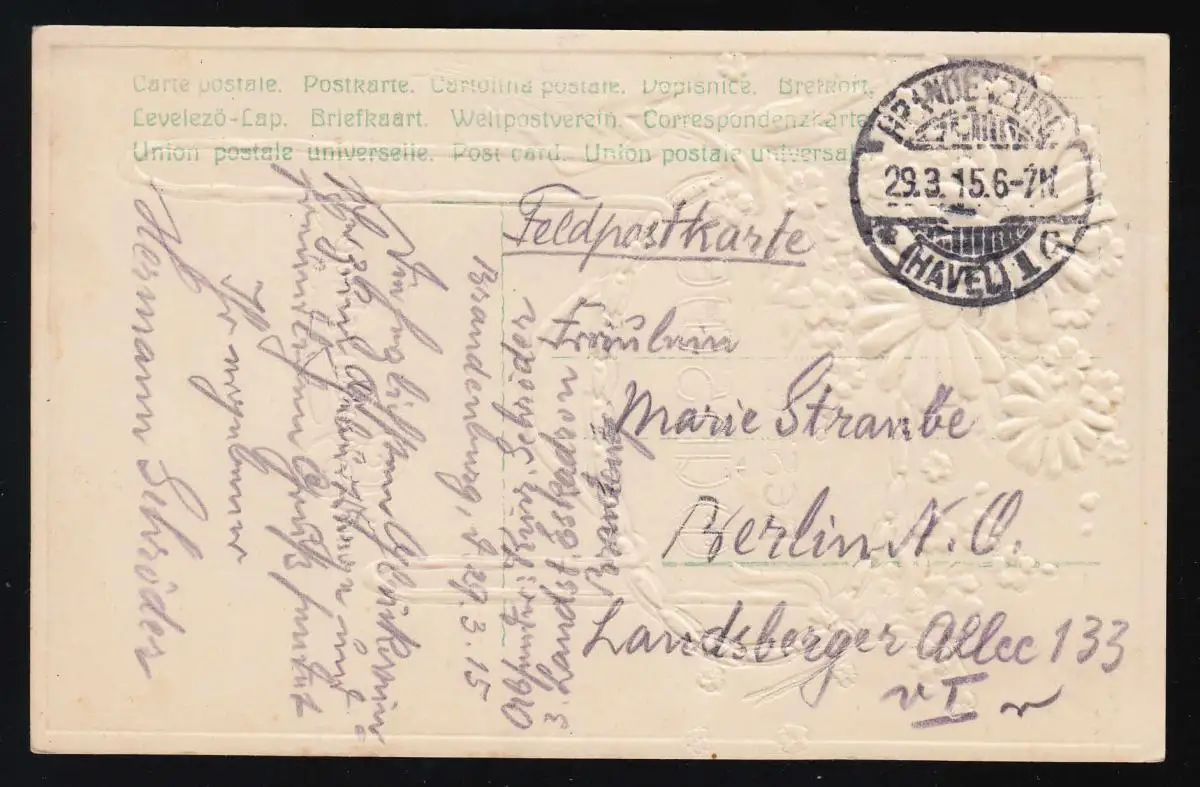 Carte postale. Postkarte. Cartolina postale. Dopisnice. Brefkort.
Levelezö-Lap. Briefkaart. Weltpostverein. Correspondenzkarte
Union postale universelle. Post card. Union postale universale
BRANDENBURG
29.3.15.6-7N.
* (HAVEL) 1 G
Feldpostkarte
Fräulein
Marie Straube
Berlin N. O.
Landsberger Allee 133
v I r
Schröder
3. Landst. Eskadron
Brandenburg
Brandenburg, d. 29.3.15
Die herzlichsten Glückwünsche
und
Gruß sendet
Ihr ergebener
Hermann Schröder